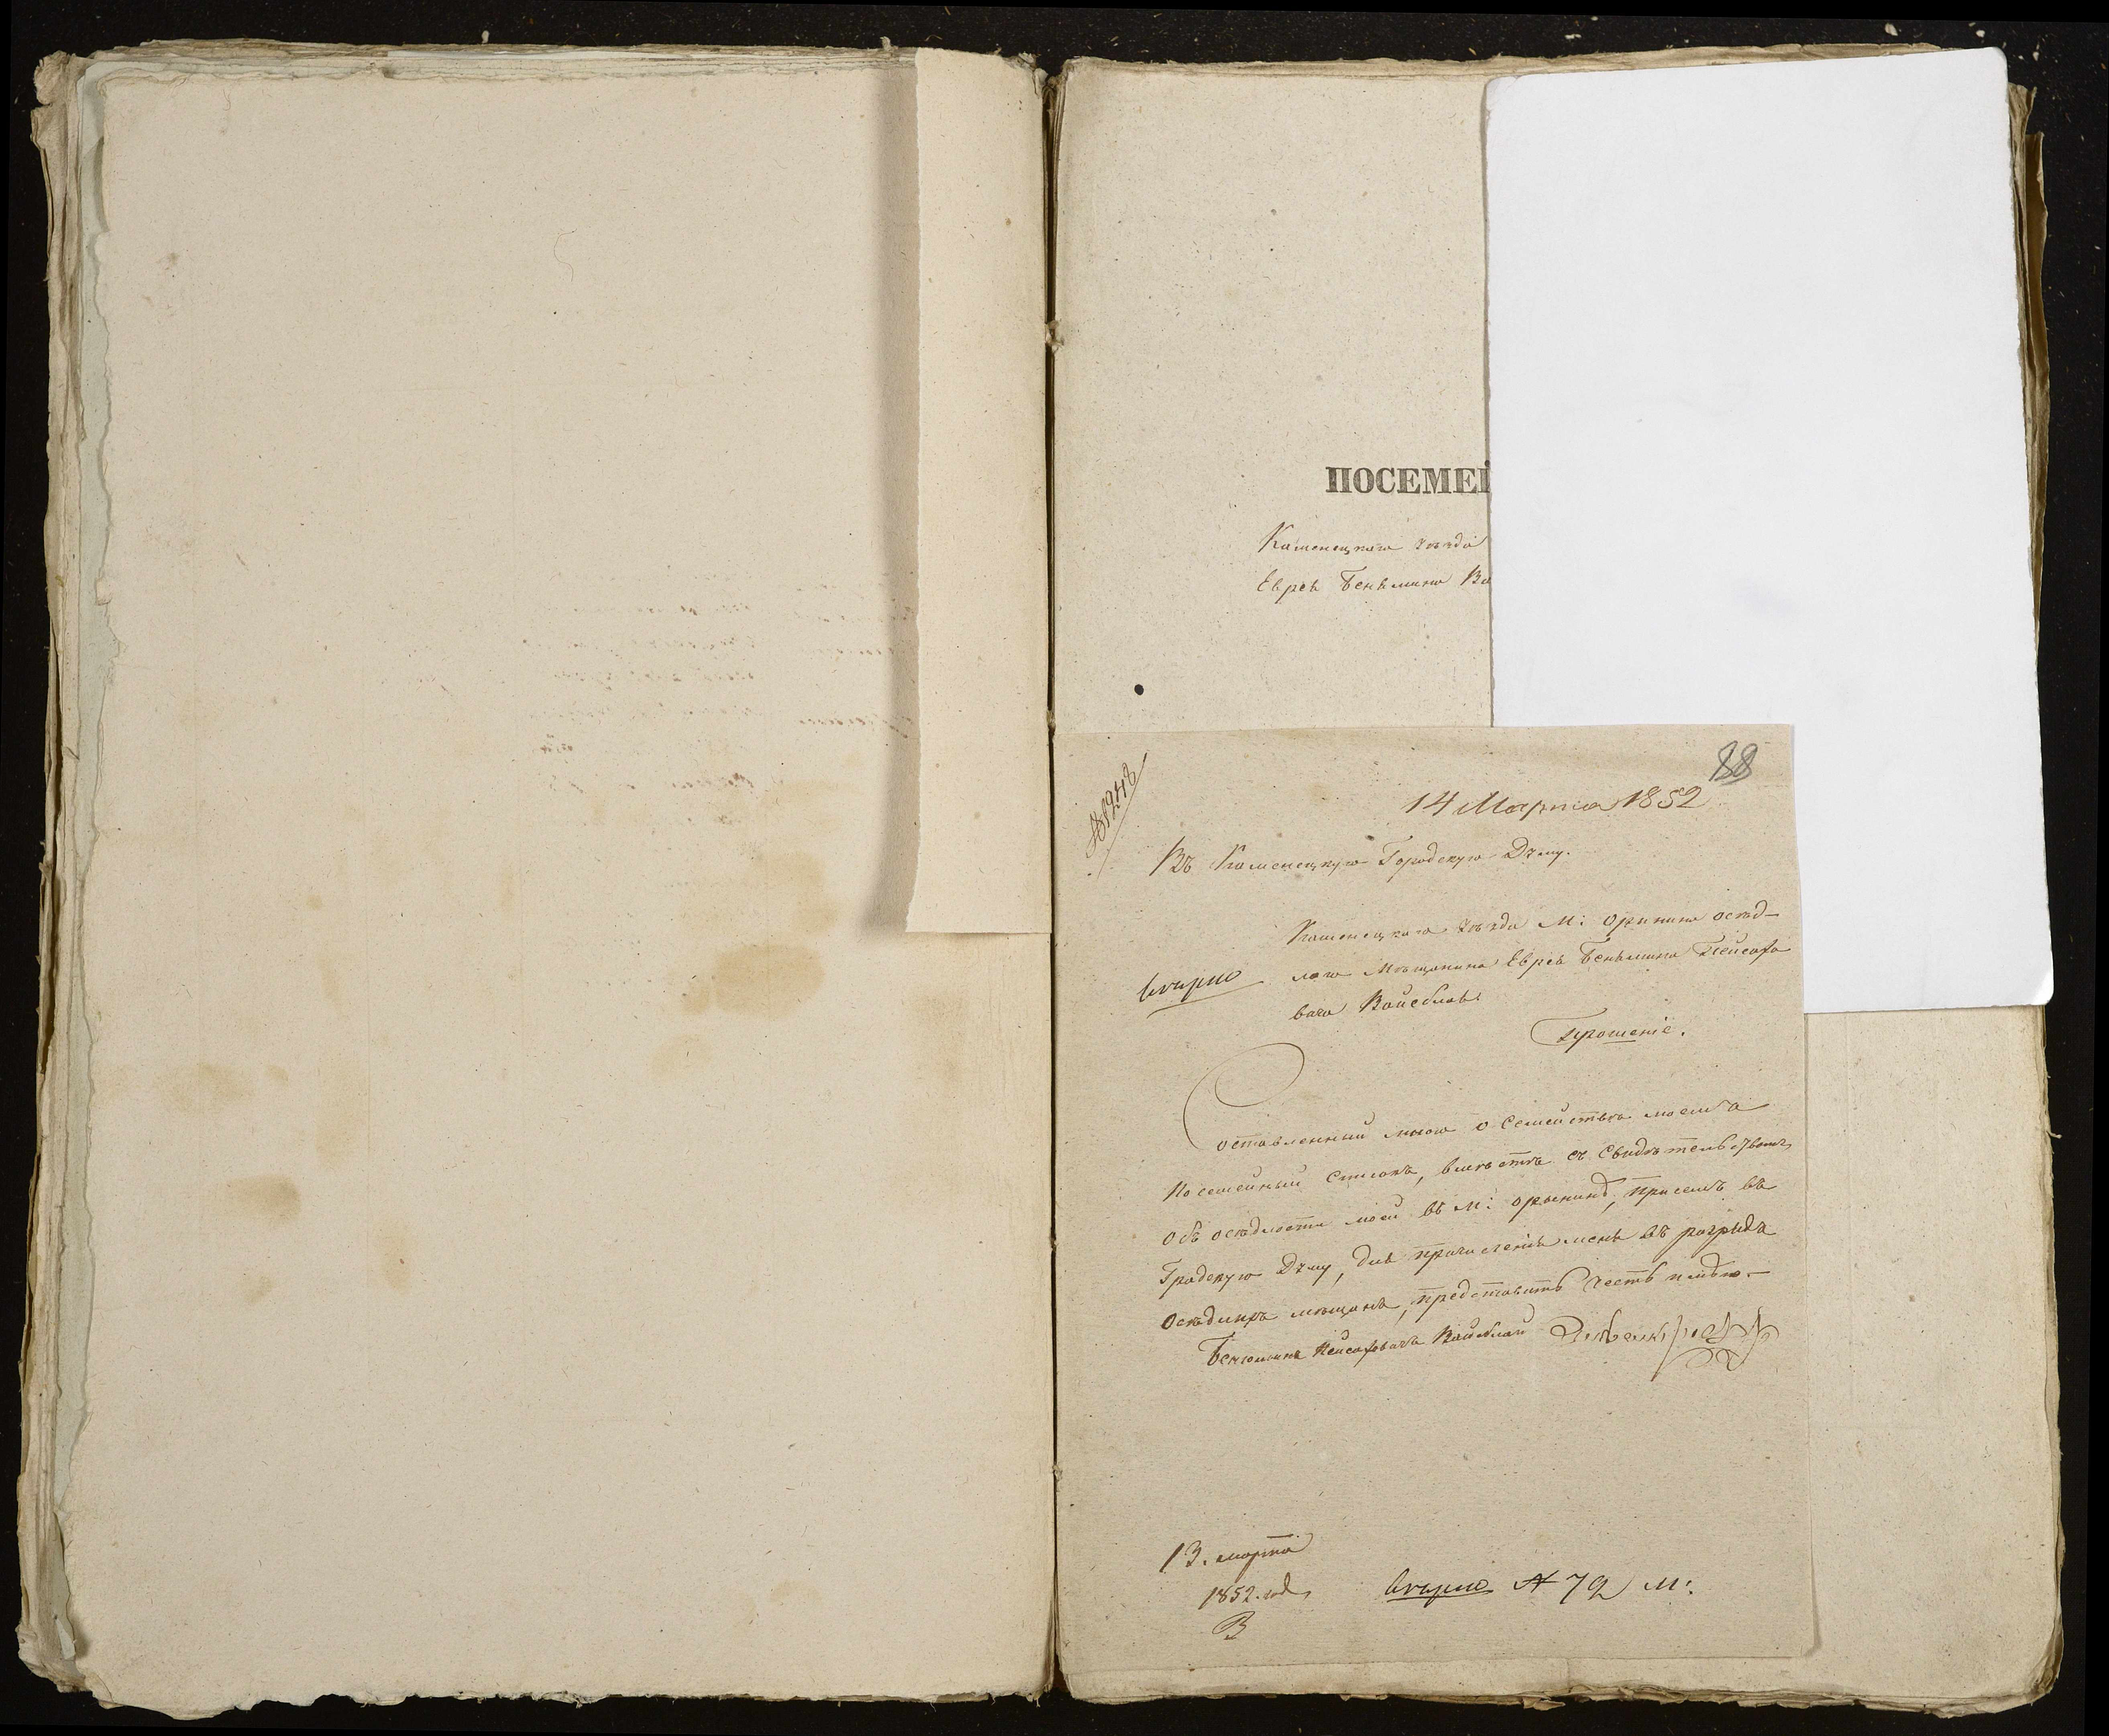 ПОСЕМЕЙ
Каменецкаго уѣзда
Еврея Беньямина Ва
88
№ 1948
14 Марта 1852
Въ Каменецкую Городскую Думу.
Каменецкаго уѣзда м: Орынина осѣд-
лаго Мѣщанина Еврея Беньямина Пейсахо
вача Вайсблат
Прошеніе.
Составленный мною о Семействѣ моемъ
посемейный списокъ, вместѣ съ Свидѣтельствомъ
объ осѣдлости моей въ м: Орынинѣ, при семъ въ
Градскую Думу, для причисленія меня въ розрядъ
осѣдлихъ мѣщанъ, представить честь имѣю.
Беньюминъ Пейсаховачъ Вайсблат
13. марта
1852. года
В
№ 79 м: